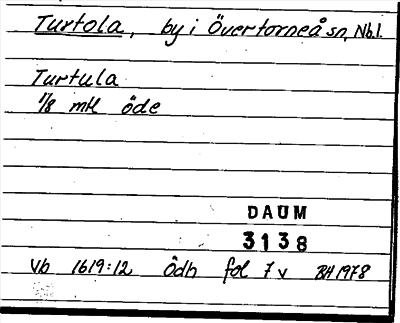 Turtola, by i Övertorneå sn, Nb.l.
Turtula
1/8 mtl öde
DAUM
3138
Vb 1619:12 Ödb fol 7 v BH 1978